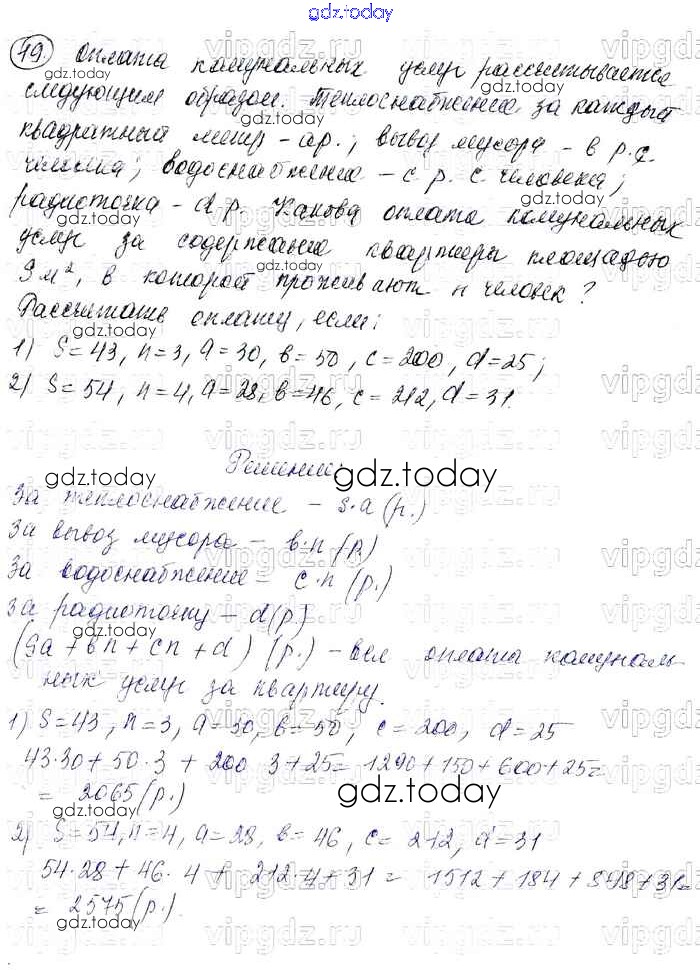 gdz.today
79. Оплата комунальных услуг рассчитывается
следующим образом. Теплоснабжение за каждый
квадратный метр - а р.; вывоз мусора - в р. с
человека; водоснабжение - с р. с человека;
радиоточка - d р. Какова оплата комунальных
услуг за содержание квартиры площадью
S м², в которой проживают n человек?
Рассчитать оплату, если:
1) S=43, n=3, a=30, в=50, c=200, d=25;
2) S=54, n=4, a=28, в=46, c=212, d=31.
Решение:
За теплоснабжение - s·a (р.)
За вывоз мусора - в·n (р.)
За водоснабжение - c·n (р.)
За радиоточку - d (р.)
(Sa + вn + cn + d) (р.) - вся оплата комуналь-
ных услуг за квартиру.
1) S=43, n=3, a=30, в=50, c=200, d=25
43·30 + 50·3 + 200 3 + 25 = 1290 + 150 + 600 + 25 =
= 2065 (р.)
2) S=54, n=4, a=28, в=46, c=212, d=31
54·28 + 46·4 + 212·4 + 31 = 1512 + 184 + 848 + 31 =
= 2575 (р.).